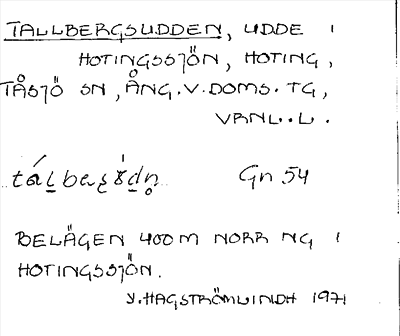 TALLBERGSUDDEN, UDDE I
HOTINGSSJÖN, HOTING,
TÅSJÖ SN, ÅNG. V. DOMS. TG,
VRNL. L.
Gn 54
BELÄGEN 400 M NORR NG I
HOTINGSSJÖN.
Y. HAGSTRÖMLINDH 1971